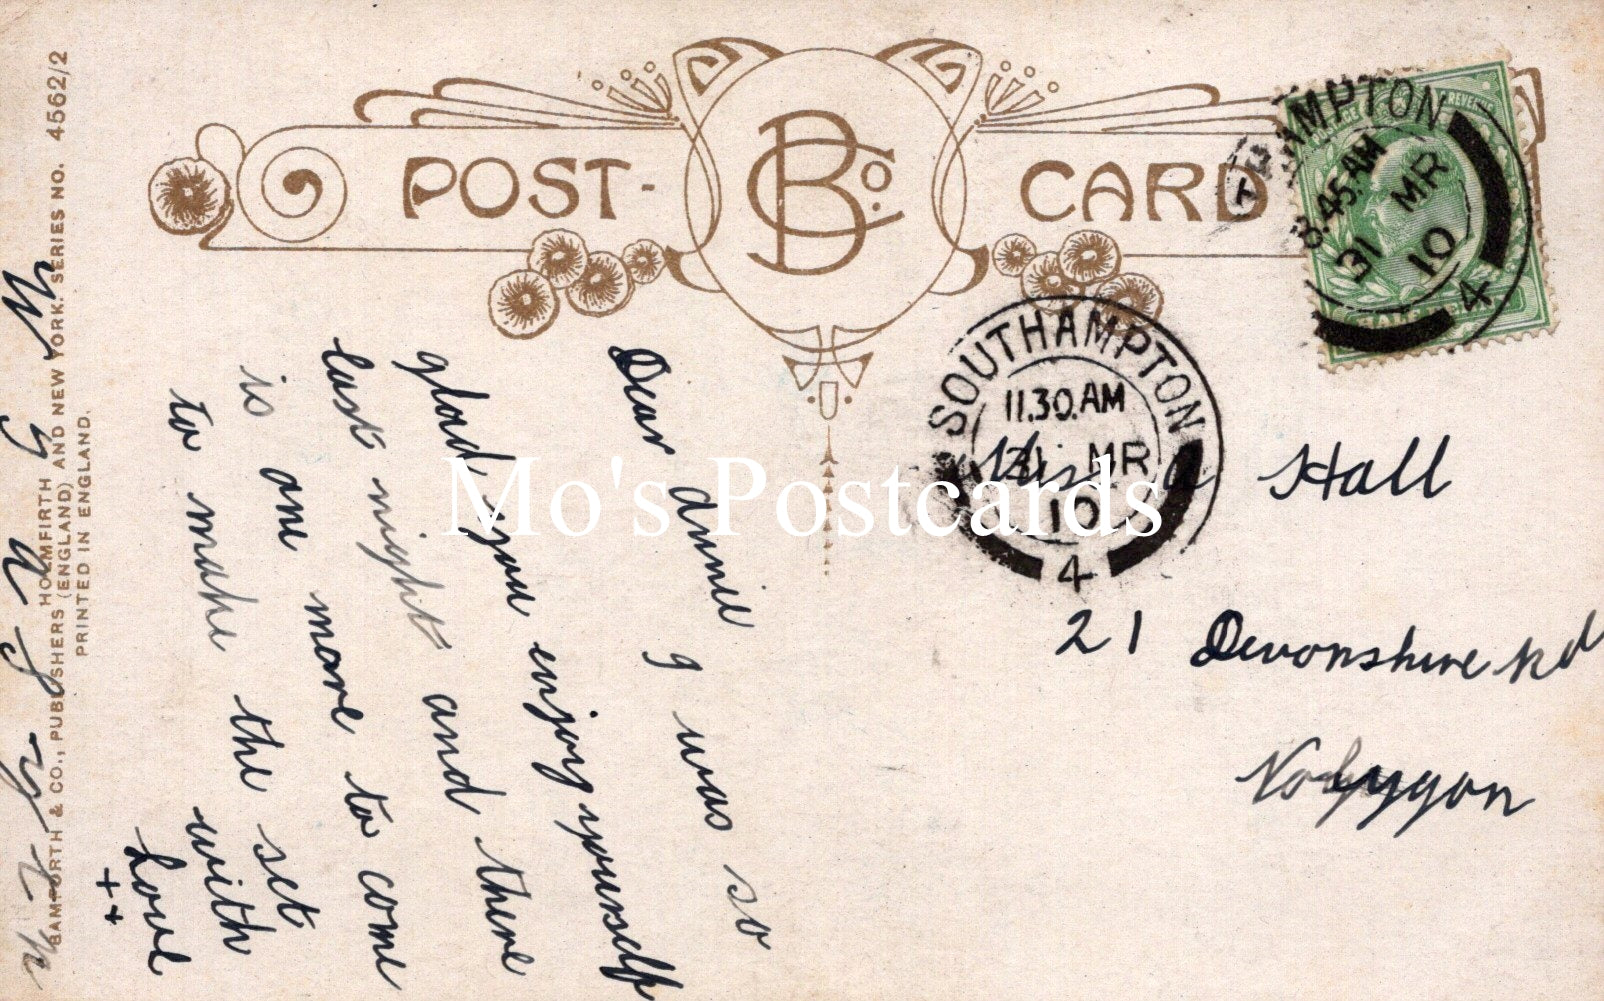 POST-CARD
B & Co.
SOUTHAMPTON
8.45.AM
31 MR
10
4
SOUTHAMPTON
11.30.AM
31 MR
10
4
Miss a Hall
21 Devonshire Rd
Dear annie I was so
glad you enjoy yourself
last night and there
is one more to come
to make the set
with
love
+ + +
BAMFORTH & CO., PUBLISHERS HOLMFIRTH (ENGLAND) AND NEW YORK. SERIES NO. 4562/2
PRINTED IN ENGLAND.
Mo's Postcards